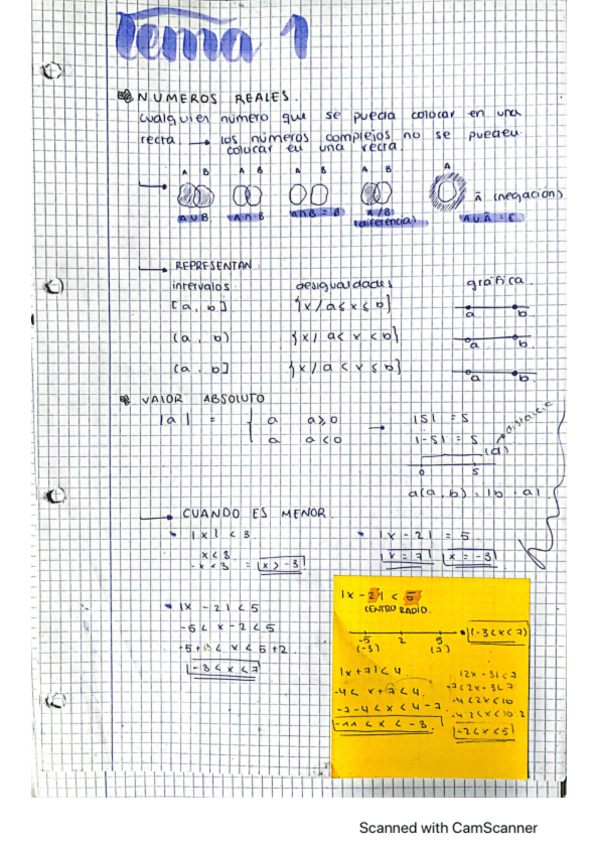 Tema 1
NUMEROS REALES.
Cualquier número que se pueda colocar en una
recta. → los números complejos no se pueden
colocar en una recta.
A B A B A B A B A
Ā (negación)
A∪B A∩B A∩B = Ø A/B A∪Ā = E
(diferencia)
→ REPRESENTAN:
intervalos desigualdades gráfica.
[a, b] {x/a≤x≤b} a b
(a, b) {x/ a< x <b} a b
(a, b] {x/a < x ≤ b} a b
VALOR ABSOLUTO
|a| = { a a≥0 → |5| = 5
a a<0 |-5| = 5 distancia
(d)
0 5
d(a,b) = |b - a|.
→ CUANDO ES MENOR.
|x| < 3. |x - 2| = 5.
x < 3 |x = 7| |x = -3|
-x < 3 = |x > -3|
|x - 2| < 5
-5 < x - 2 < 5
-5+2 < x < 5+2.
|-3<x<7|
|x - 2| < 5
CENTRO RADIO.
-5 2 5 |-3<x<7|
(-3) (7)
|x+7| < 4 |2x - 3| < 7
-4 < x+7 < 4. -7<2x-3<7
-7-4 < x < 4-7. -4<2x<10
|-11 < x < -3| -4:2<x<10:2
|-2<x<5|
Scanned with CamScanner